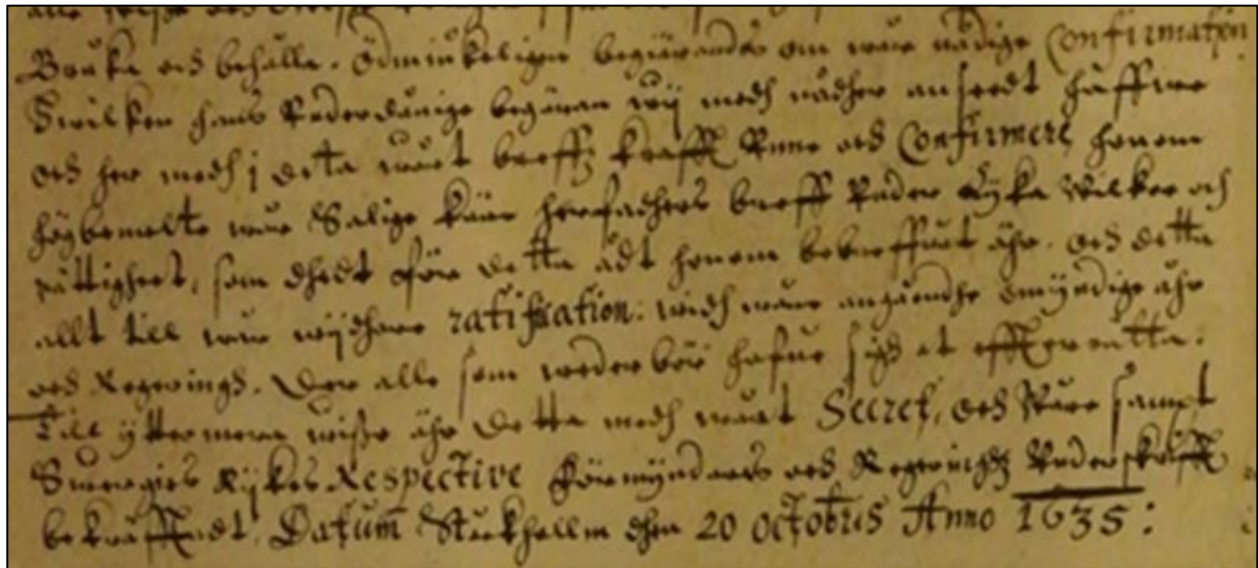 Bruka och behålla. Ödmiukeligen begiärandes om wår nådige Confirmation
Hwilken hans Underdånige begäran wij medh nådher anseedt haffwe
och her medh i detta wårt breffz krafft Unne och Confirmere honom
högbemelte wår Salige käre herfadhers breff Under lijka Wilkor och
rättigheet, som dhedt för detta ådt honom bebreffwet ähr. och detta
allt till wår wijdhare ratification: widh wåre angående Omyndige åhr
och Regerings. Der alle som wederbör hafwe sigh at effterrätta.
Till yttermera wisso ähr detta medh wårt Secret, och Wåre sampt
Swerigies Rijkes Respective Förmyndares och Regeringhz Underskrifft
bekräfftadt. Datum Stockholm dhen 20 Octobris Anno 1635: